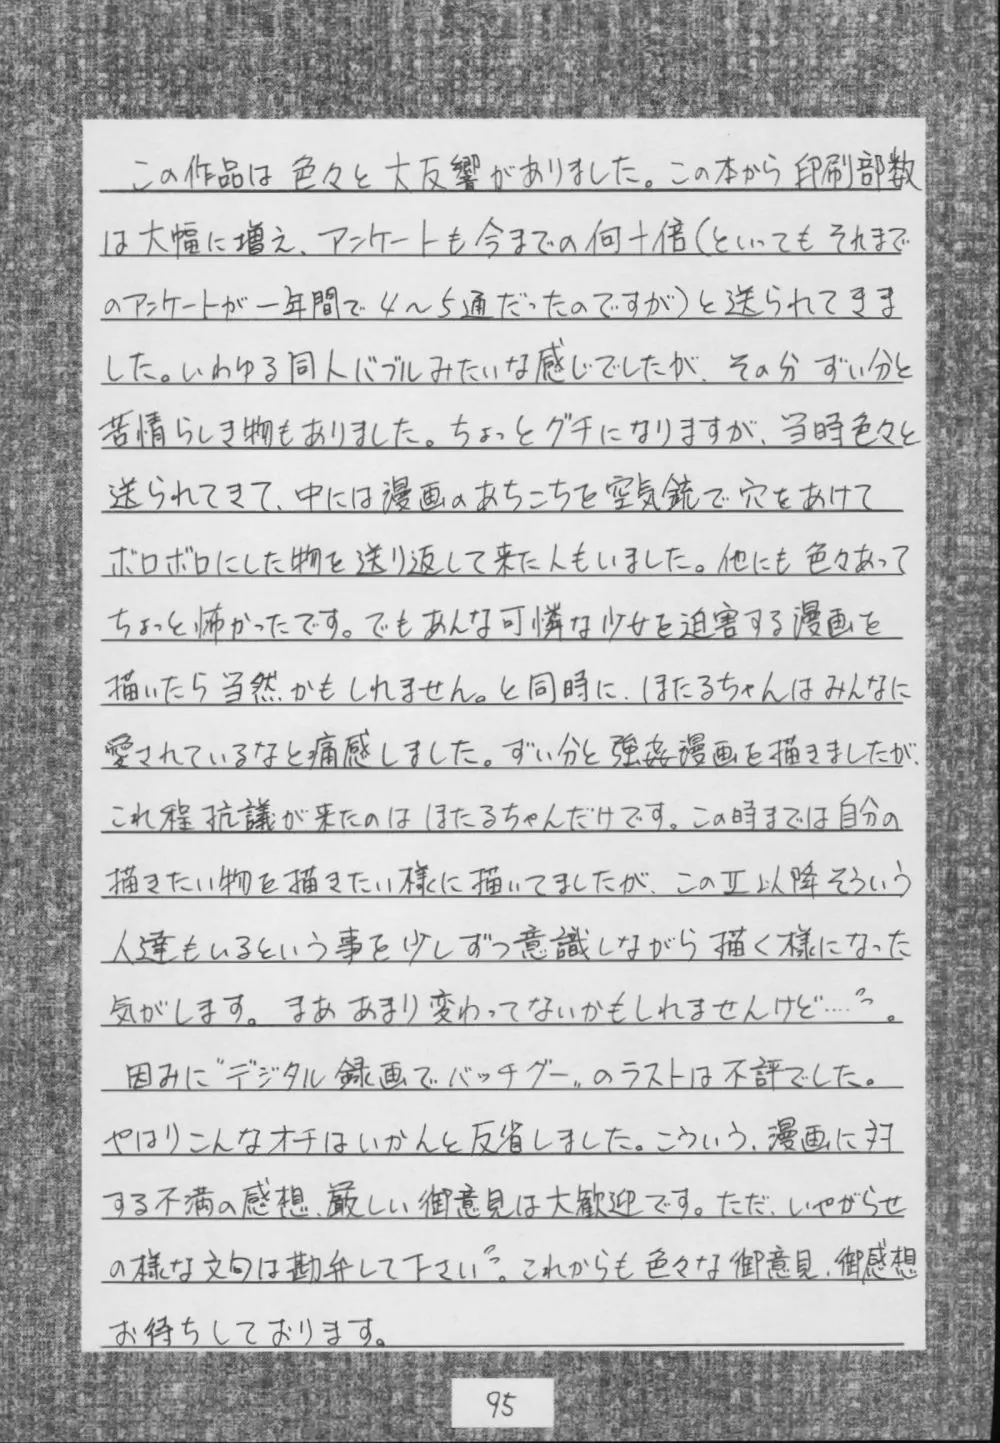 この作品は色々と大反響がありました。この本から印刷部数
は大幅に増え、アンケートも今までの何十倍(といってもそれまで
のアンケートが一年間で4〜5通だったのですが)と送られてきま
した。いわゆる同人バブルみたいな感じでしたが、その分ずい分と
苦情らしき物もありました。ちょっとグチになりますが、当時色々と
送られてきて、中には漫画のあちこちを空気銃で穴をあけて
ボロボロにした物を送り返して来た人もいました。他にも色々あって
ちょっと怖かったです。でもあんな可憐な少女を迫害する漫画を
描いたら当然かもしれません。と同時に、ほたるちゃんはみんなに
愛されているなと痛感しました。ずい分と強姦漫画を描きましたが、
これ程抗議が来たのはほたるちゃんだけです。この時までは自分の
描きたい物を描きたい様に描いてましたが、このII以降そういう
人達もいるという事を少しずつ意識しながら描く様になった
気がします。まああまり変わってないかもしれませんけど……。
因みに"デジタル録画でバッチグー"のラストは不評でした。
やはりこんなオチはいかんと反省しました。こういう、漫画に対
する不満の感想、厳しい御意見は大歓迎です。ただ、いやがらせ
の様な文句は勘弁して下さい。これからも色々な御意見、御感想
お待ちしております。
95